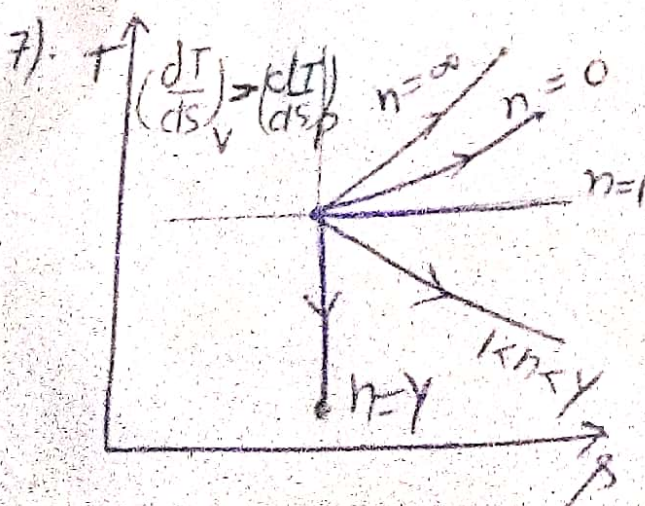 7).
T
(dT/ds)v > (dT/ds)p
n=∞
n=0
n=1
1<n<γ
n=γ
s